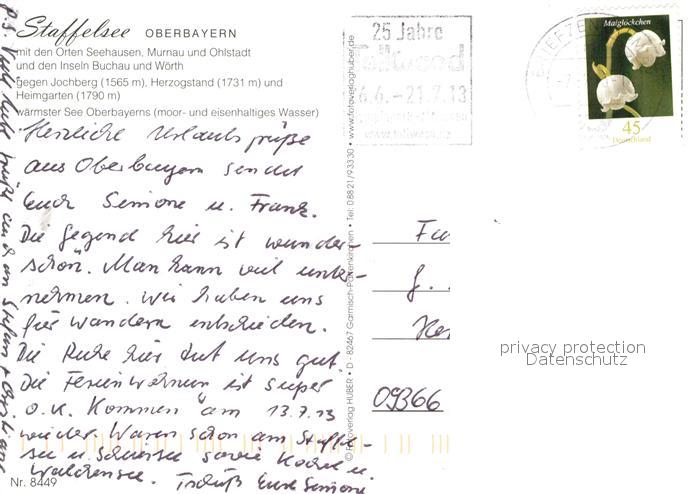 Staffelsee OBERBAYERN
mit den Orten Seehausen, Murnau und Ohlstadt
und den Inseln Buchau und Wörth
gegen Jochberg (1565 m), Herzogstand (1731 m) und
Heimgarten (1790 m)
wärmster See Oberbayerns (moor- und eisenhaltiges Wasser)
Herzliche Urlaubsgrüße
aus Oberbayern sendet
Euch Simone u. Frank.
Die Gegend hier ist wunder-
schön. Man kann viel unter-
nehmen. Wir haben uns
für wandern entschieden.
Die Ruhe hier tut uns gut.
Die Ferienwohnun ist super
o.k. Kommen am 13.7.13
wieder. Waren schon am Staffel-
see u. sowie Kochel u.
Walchensee. Tschüß Eure Simone
Nr. 8449
P.S.
© Fotoverlag HUBER • D - 82467 Garmisch-Partenkirchen • Tel. 08821/93330 • www.fotoverlaghuber.de
25 Jahre
Tollwood
6.-21.7.13
www.tollwood.de
BRIEFZEN
Maiglöckchen
45
Deutschland
Fa
09366
privacy protection
Datenschutz